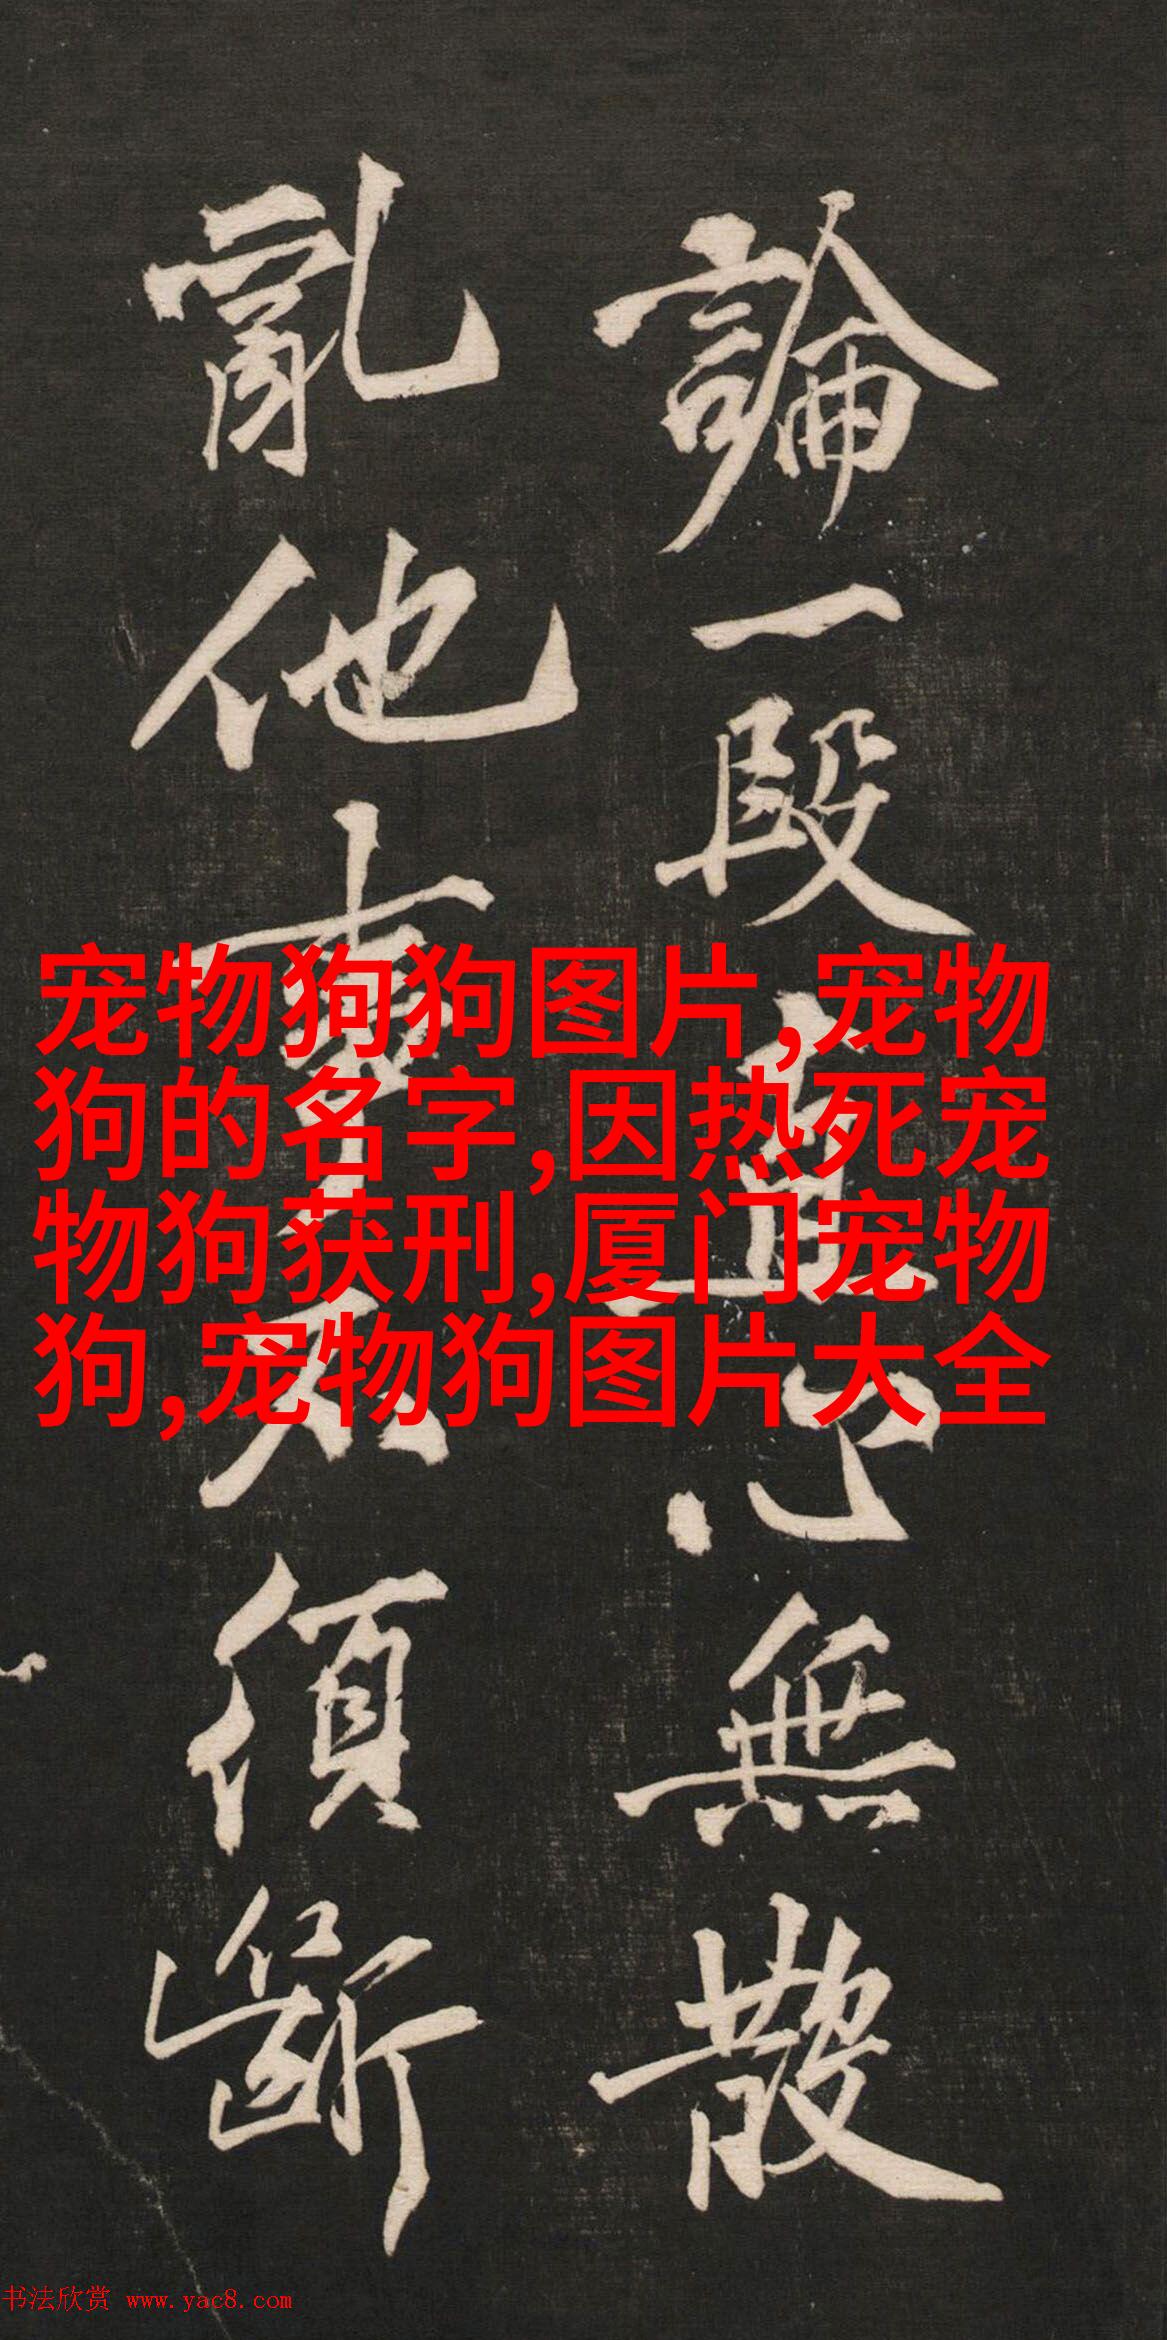 論一段直心無散
亂他事不須斷
宠物狗狗图片,宠物
狗的名字,因热死宠
物狗获刑,厦门宠物
狗,宠物狗图片大全
书法欣赏 www.yac8.com